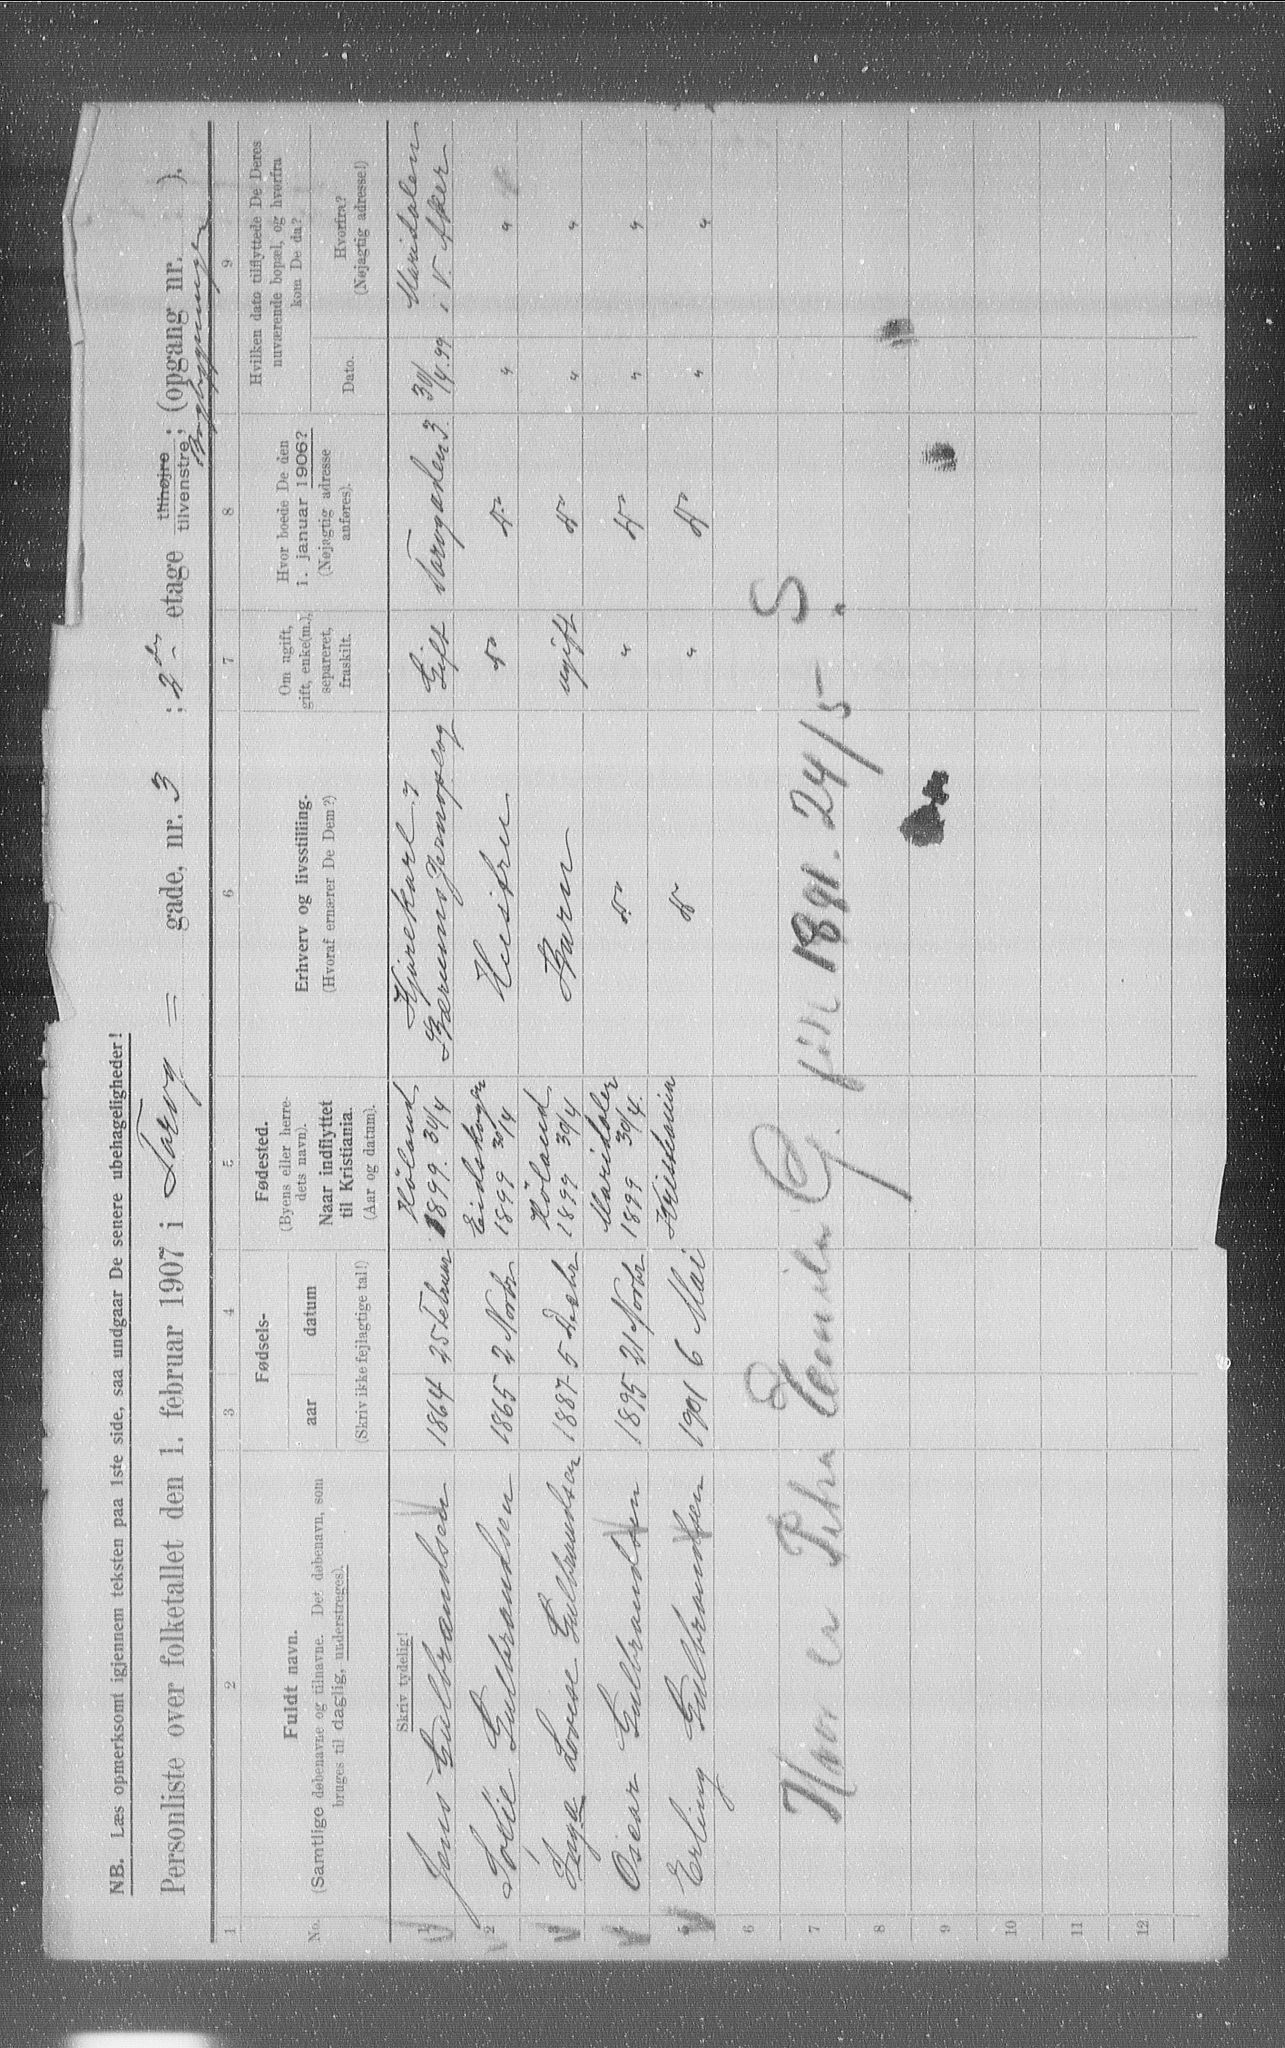 NB. Læs opmerksomt igjennem teksten paa 1ste side, saa undgaar De senere ubehageligheder!
Personliste over folketallet den 1. februar 1907 i Torvg = gade, nr. 3 ; 2den etage tilhøjre tilvenstre; (opgang nr. ).
1 2 3 4 5 6 7 8 9
No.
Fuldt navn.
(Samtlige døbenavne og tilnavne. Det døbenavn, som
bruges til daglig, understreges).
Skriv tydelig!
Fødsels-
aar datum
(Skriv ikke fejlagtige tal!)
Fødested.
(Byens eller herre-
dets navn).
Naar indflyttet
til Kristiania.
(Aar og datum).
Erhverv og livsstilling.
(Hvoraf ernærer De Dem?)
Om ugift,
gift, enke(m.),
separeret,
fraskilt.
Hvor boede De den
1. januar 1906?
(Nøjagtig adresse
anføres).
Hvilken dato tilflyttede De Deres
nuværende bopæl, og hvorfra
kom De da?
Dato.
Hvorfra?
(Nøjagtig adresse!)
1 Jens Gulbrandsen 1864 25 Februar Höland 1899. 30/4 Kjørekarl Bærums Gift Torvgaden 3. 30/4.99 Maridalen i V. Aker
2 Gulbrandsen 1865 2 Novbr Eidskogen 1899 30/4 Husfru do do " "
3 Inga Lovise Gulbrandsen 1887 5 Decbr Höland 1899 30/4 Barn ugift do " "
4 Oscar Gulbrandsen 1895 21 Novbr Maridalen 1899 30/4. do " do " "
5 Erling Gulbrandsen 1901 6 Mai Kristiania do " do " "
6
7 Hvor er Petra Emilie G. før 1891. 24/5 S.
8
9
10
11
12